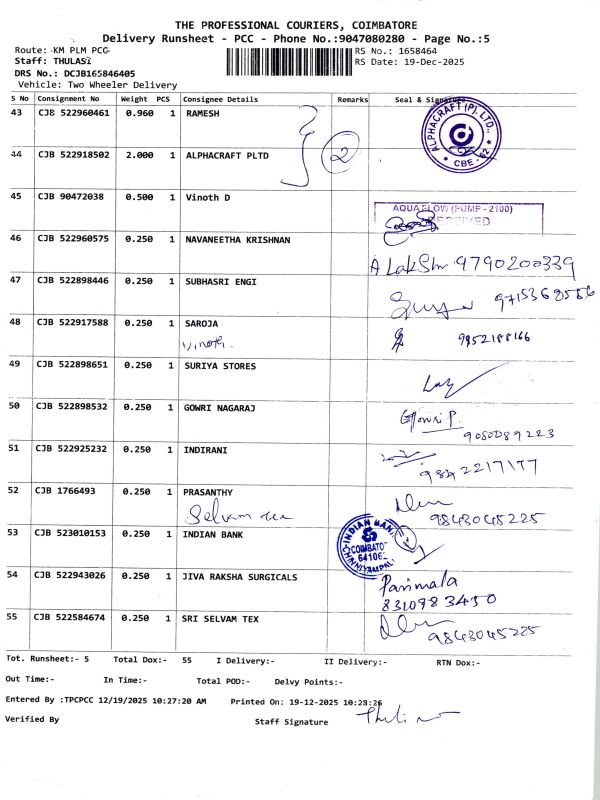 THE PROFESSIONAL COURIERS, COIMBATORE
Delivery Runsheet - PCC - Phone No.:9047080280 - Page No.:5
Route: KM PLM PCG
RS No.: 1658464
Staff: THULASI
RS Date: 19-Dec-2025
DRS No.: DCJB165846405
Vehicle: Two Wheeler Delivery
S No Consignment No Weight PCS Consignee Details Remarks Seal & Signature
43 CJB 522960461 0.960 1 RAMESH
ALPHACRAFT (P). LTD., CBE - 62
44 CJB 522918502 2.000 1 ALPHACRAFT PLTD 2
45 CJB 90472038 0.500 1 Vinoth D
AQUAFLOW (PUMP - 2100)
RECEIVED
46 CJB 522960575 0.250 1 NAVANEETHA KRISHNAN
A Lakshmi 9790200339
47 CJB 522898446 0.250 1 SUBHASRI ENGI
9715368566
48 CJB 522917588 0.250 1 SAROJA
Vinoth. 9952188166
49 CJB 522898651 0.250 1 SURIYA STORES
50 CJB 522898532 0.250 1 GOWRI NAGARAJ
Gowri P.
9080089223
51 CJB 522925232 0.250 1 INDIRANI
9842217177
52 CJB 1766493 0.250 1 PRASANTHY
Selvam Tex 9843045225
53 CJB 523010153 0.250 1 INDIAN BANK
INDIAN BANK
COIMBATO
64106
54 CJB 522943026 0.250 1 JIVA RAKSHA SURGICALS
Parimala
8310983430
55 CJB 522584674 0.250 1 SRI SELVAM TEX
9843045225
Tot. Runsheet:- 5 Total Dox:- 55 I Delivery:- II Delivery:- RTN Dox:-
Out Time:- In Time:- Total POD:- Delvy Points:-
Entered By :TPCPCC 12/19/2025 10:27:20 AM Printed On: 19-12-2025 10:28:26
Verified By Staff Signature